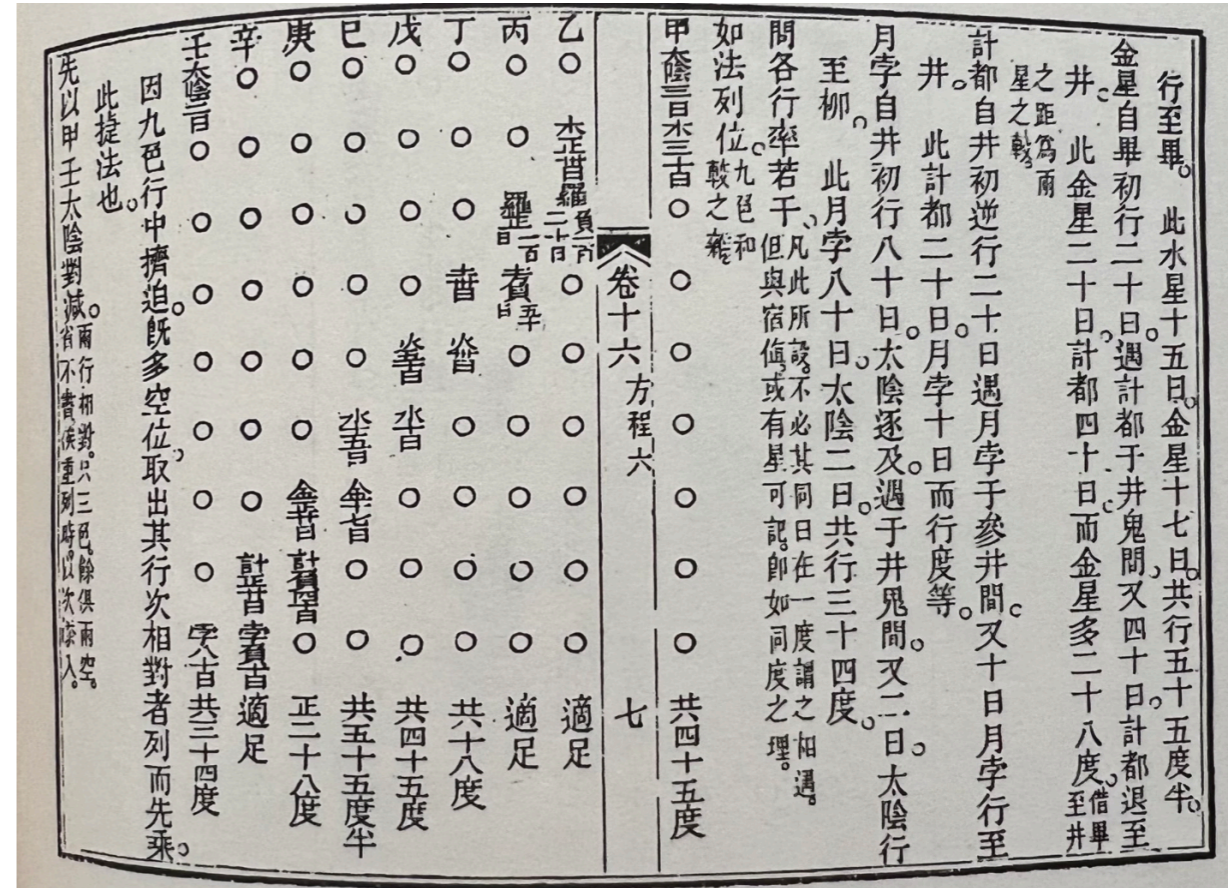 行至畢。 此水星十五日。金星十七日。共行五十五度半。
金星自畢初行二十日。遇計都于井鬼間。又四十日。計都退至
井。 此金星二十日。計都四十日。而金星多二十八度。借畢至井
之距爲兩星之數。
計都自井初逆行二十日遇月孛于參井間。又十日月孛行至
井。 此計都二十日。月孛十日而行度等。
月孛自井初行八十日。太陰逐及。遇于井鬼間。又二日。太陰行
至柳。 此月孛八十日。太陰二日。共行三十四度。
問各行率若干。凡此所設。不必其同日在一度謂之相遇。但與宿值。或有星可記。卽如同度之理。
如法列位。九色和數之雜。
甲 太陰 木 ○ ○ ○ ○ ○ ○ ○ 共四十五度
卷十六 方程六 七
乙 ○ 木正 羅負一百二十日 ○ ○ ○ ○ ○ ○ 適足
丙 ○ ○ 羅正一百日 土負五十日 ○ ○ ○ ○ ○ 適足
丁 ○ ○ ○ 土 火 ○ ○ ○ ○ 共十八度
戊 ○ ○ ○ ○ 火 水 ○ ○ ○ 共四十五度
己 ○ ○ ○ ○ ○ 水 金 ○ ○ 共五十五度半
庚 ○ ○ ○ ○ ○ ○ 金正廿日 計負四十日 ○ 正二十八度
辛 ○ ○ ○ ○ ○ ○ ○ 計正廿日 孛負十日 適足
壬 太陰二日 ○ ○ ○ ○ ○ ○ ○ 孛八十日 共三十四度
因九色行中擠迫。旣多空位。取出其行次相對者列而先乘。
此捷法也。
先以甲壬太陰對減。兩行相對。只三色。餘俱兩空。省不書。俟重列時。以次添入。